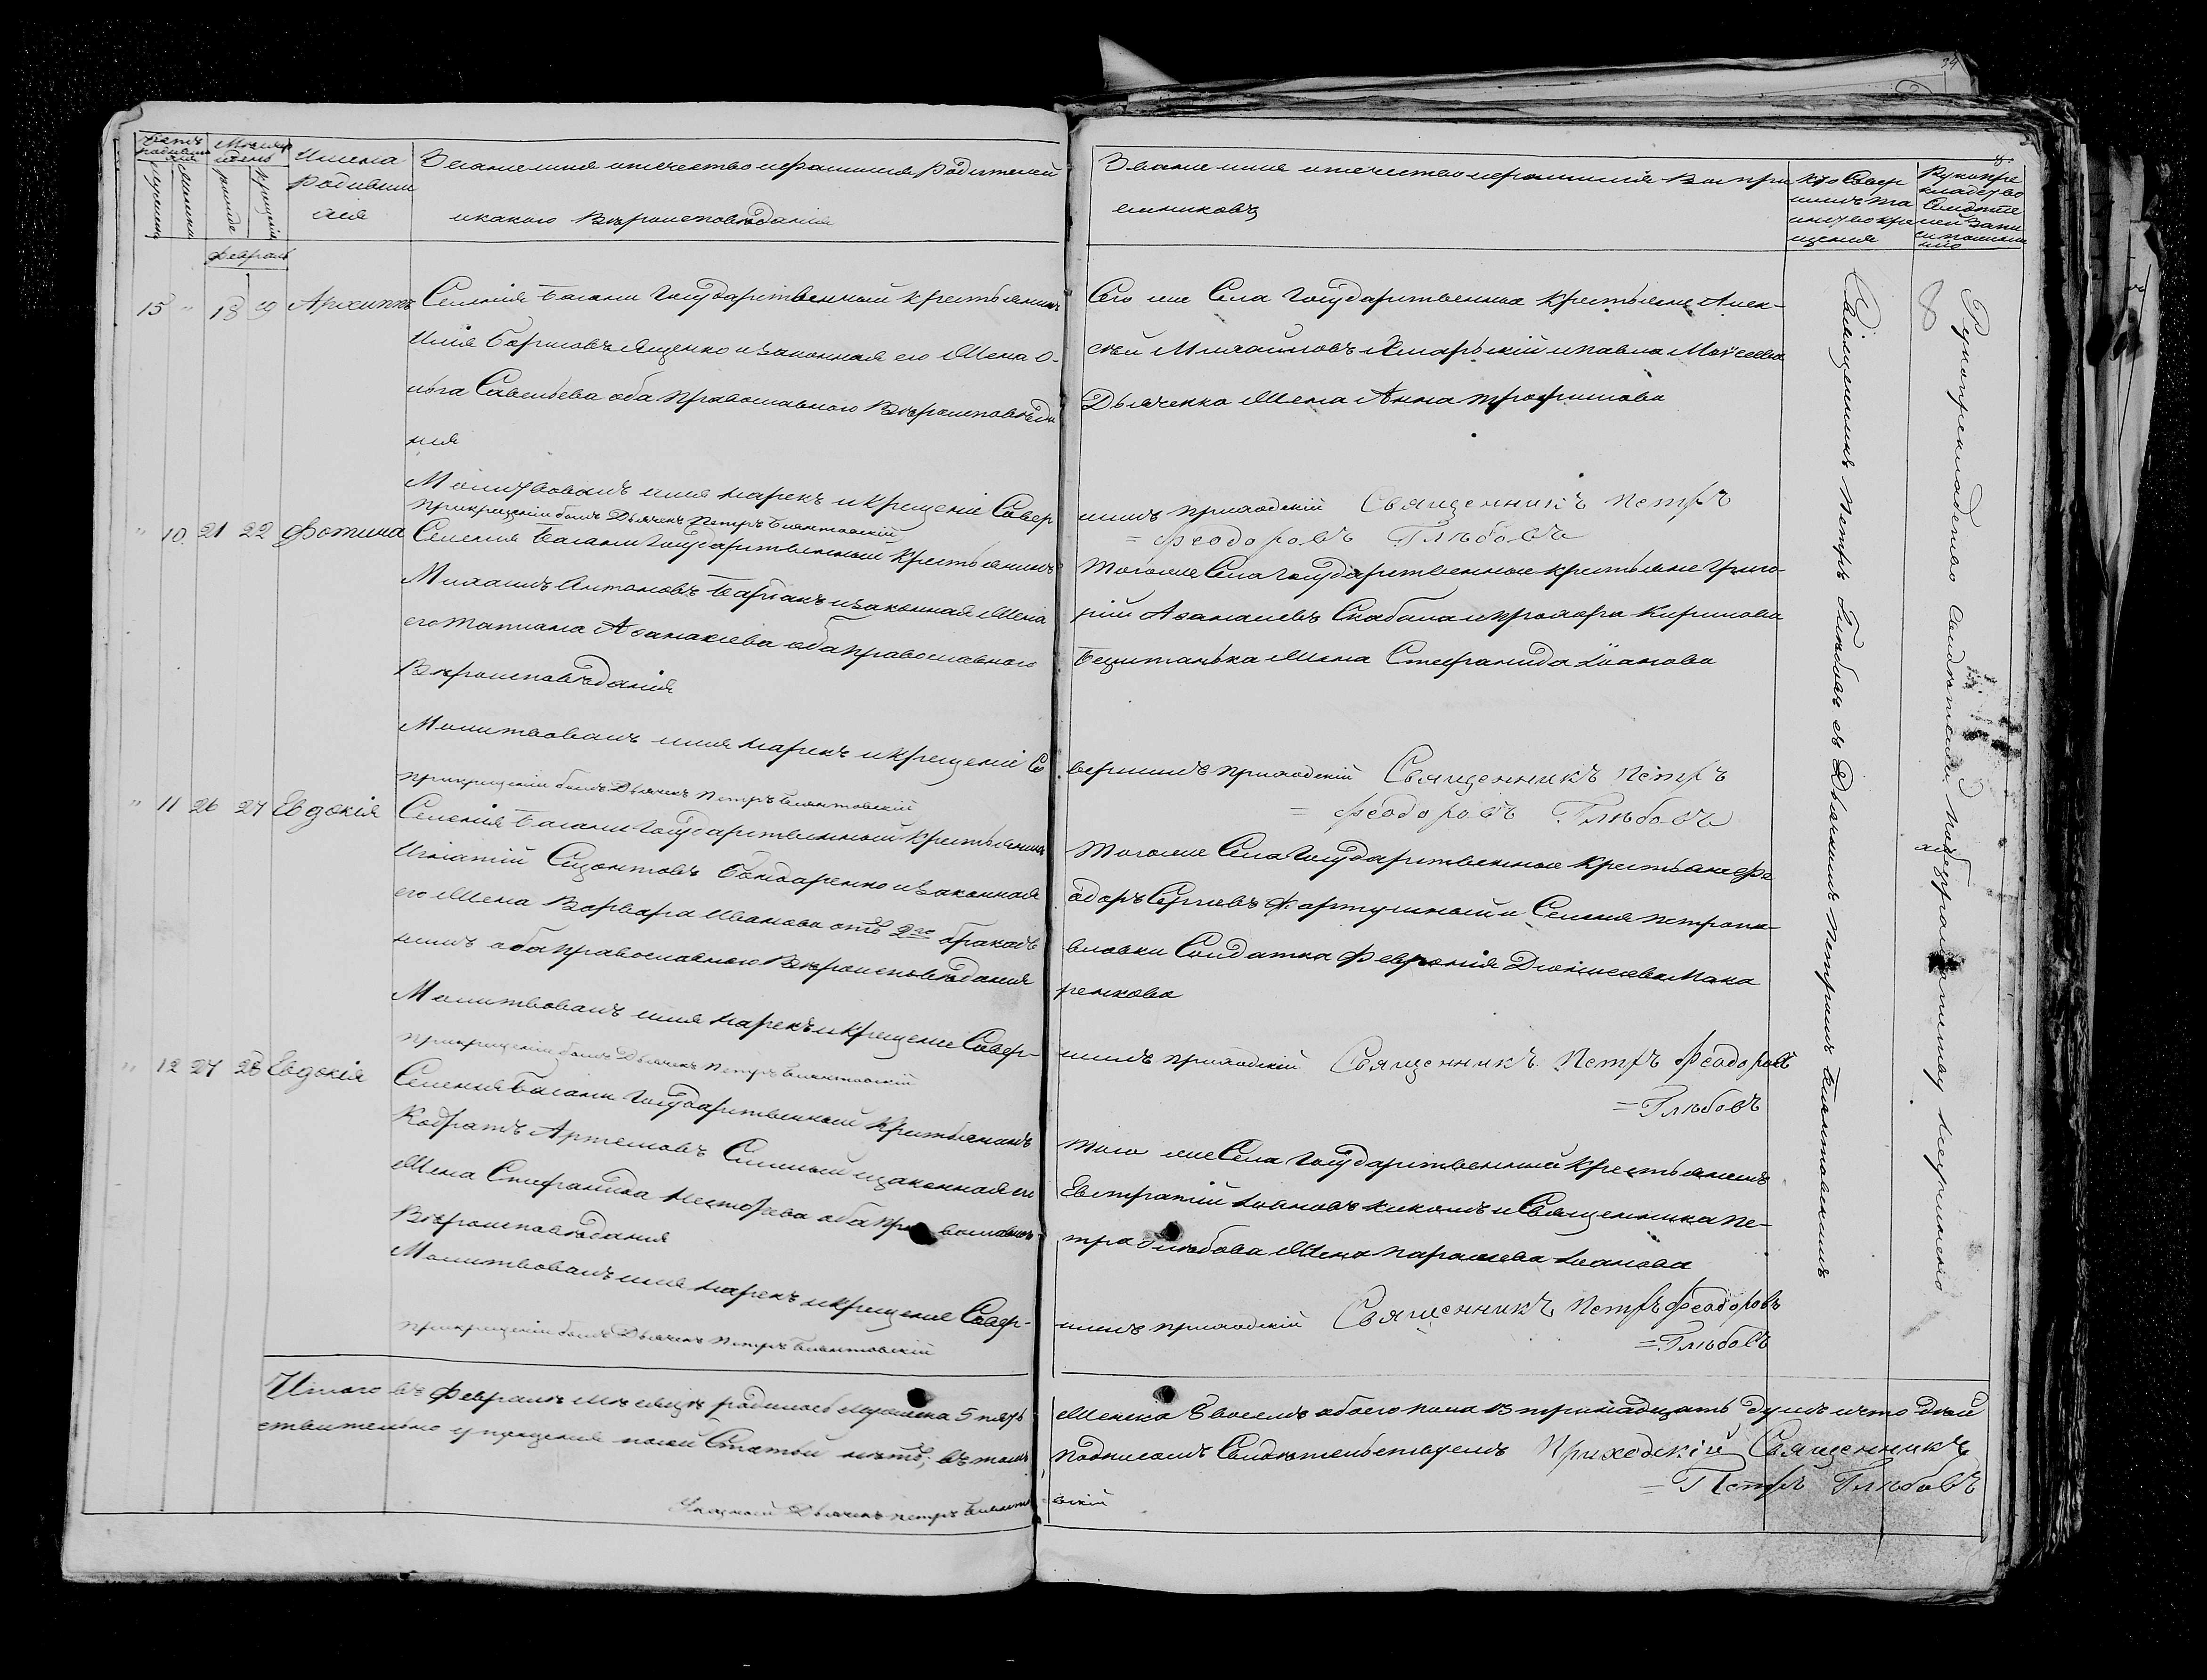 Счетъ родившихся
Мужеска
Женска
Месяцъ и день
рожде
крещенія
Имена
родивши
хся
Званіе имя отечество и фамилія Родителей
и какого Вѣроисповѣданія
Февраль
15 " 18 19 Архиппъ
Селенія Басани Государственный крестьянинъ
Илія Борисовъ Яценко и законная его Жена О-
льга Савельева оба православнаго Вѣроисповѣда
нія
Молитвовалъ имя нарекъ и крещеніе Совер
при крещеніи былъ Дьячекъ Петръ
" 10 21 22 Фотина
Селенія Басани Государственный крестьянинъ
Михаилъ Антоновъ и законная Жена
его Татиана Аѳанасіева оба православнаго
Вѣроисповѣданія
Молитвовалъ имя нарекъ и крещеніе Со
при крещеніи былъ Дьячекъ Петръ
" 11 26 27 Евдокія
Селенія Басани Государственный крестьянинъ
Игнатій Созонтовъ Бондаренко и законная
его Жена Варвара Иванова отъ 2го брака
оба православнаго Вѣроисповѣданія
Молитвовалъ имя нарекъ и крещеніе Совер-
при крещеніи былъ Дьячекъ Петръ
" 12 27 28 Евдокія
Селенія Басани Государственный крестьянинъ
Кодратъ Артемовъ и законная его
Жена Стефанида Несторева оба православнаго
Вѣроисповѣданія
Молитвовалъ имя нарекъ и крещеніе Совер-
при крещеніи былъ Дьячекъ Петръ
Итого въ Февралѣ Мѣсяцѣ родилось Мужеска 5 пять
ствительно и пропуска ни одной Статьи нѣтъ, въ томъ
Дьячекъ Петръ
Званіе имя отечество и фамилія Воспрі
емниковъ
Кто Совер
шилъ та
инство кре
щенія
Рукопри
кладство
Свидѣте
лей Запи
си по жела
нію
Того же Села Государственные крестьяне Алек-
сѣй Михайловъ и Павла Моисеева
Дьяченка Жена Анна Трофимова
шилъ приходскій Священникъ Петръ
= Феодоровъ Глѣбовъ
Того же Села Государственные крестьяне Григо-
рій Аѳанасіевъ Скабала и Прохора Кирилова
Жена Стефанида Іоанова
вершилъ приходскій Священникъ Петръ
= Феодоровъ Глѣбовъ
Того же Села Государственные крестьяне Фе
одоръ Сергіевъ Фартушный и Селенія Петропа-
вловки Солдатка Февронія Діонисіева Мака
ренкова
шилъ приходскій Священникъ Петръ Феодоровъ
= Глѣбовъ
Того же Села Государственный крестьянинъ
Евстратій Іоановъ и Священника Пе-
тра Глѣбова Жена Параскева Іоанова
шилъ приходскій Священникъ Петръ Феодоровъ
= Глѣбовъ
Женска 8 восемъ обоего пола 13 тринадцать душъ и что дѣй
подписомъ Свидѣтельствуемъ Приходскій Священникъ
= Петръ Глѣбовъ
вскій
Священникъ Петръ Глѣбовъ съ Дьячкомъ Петромъ
8
Рукоприкладство Свидѣтелей